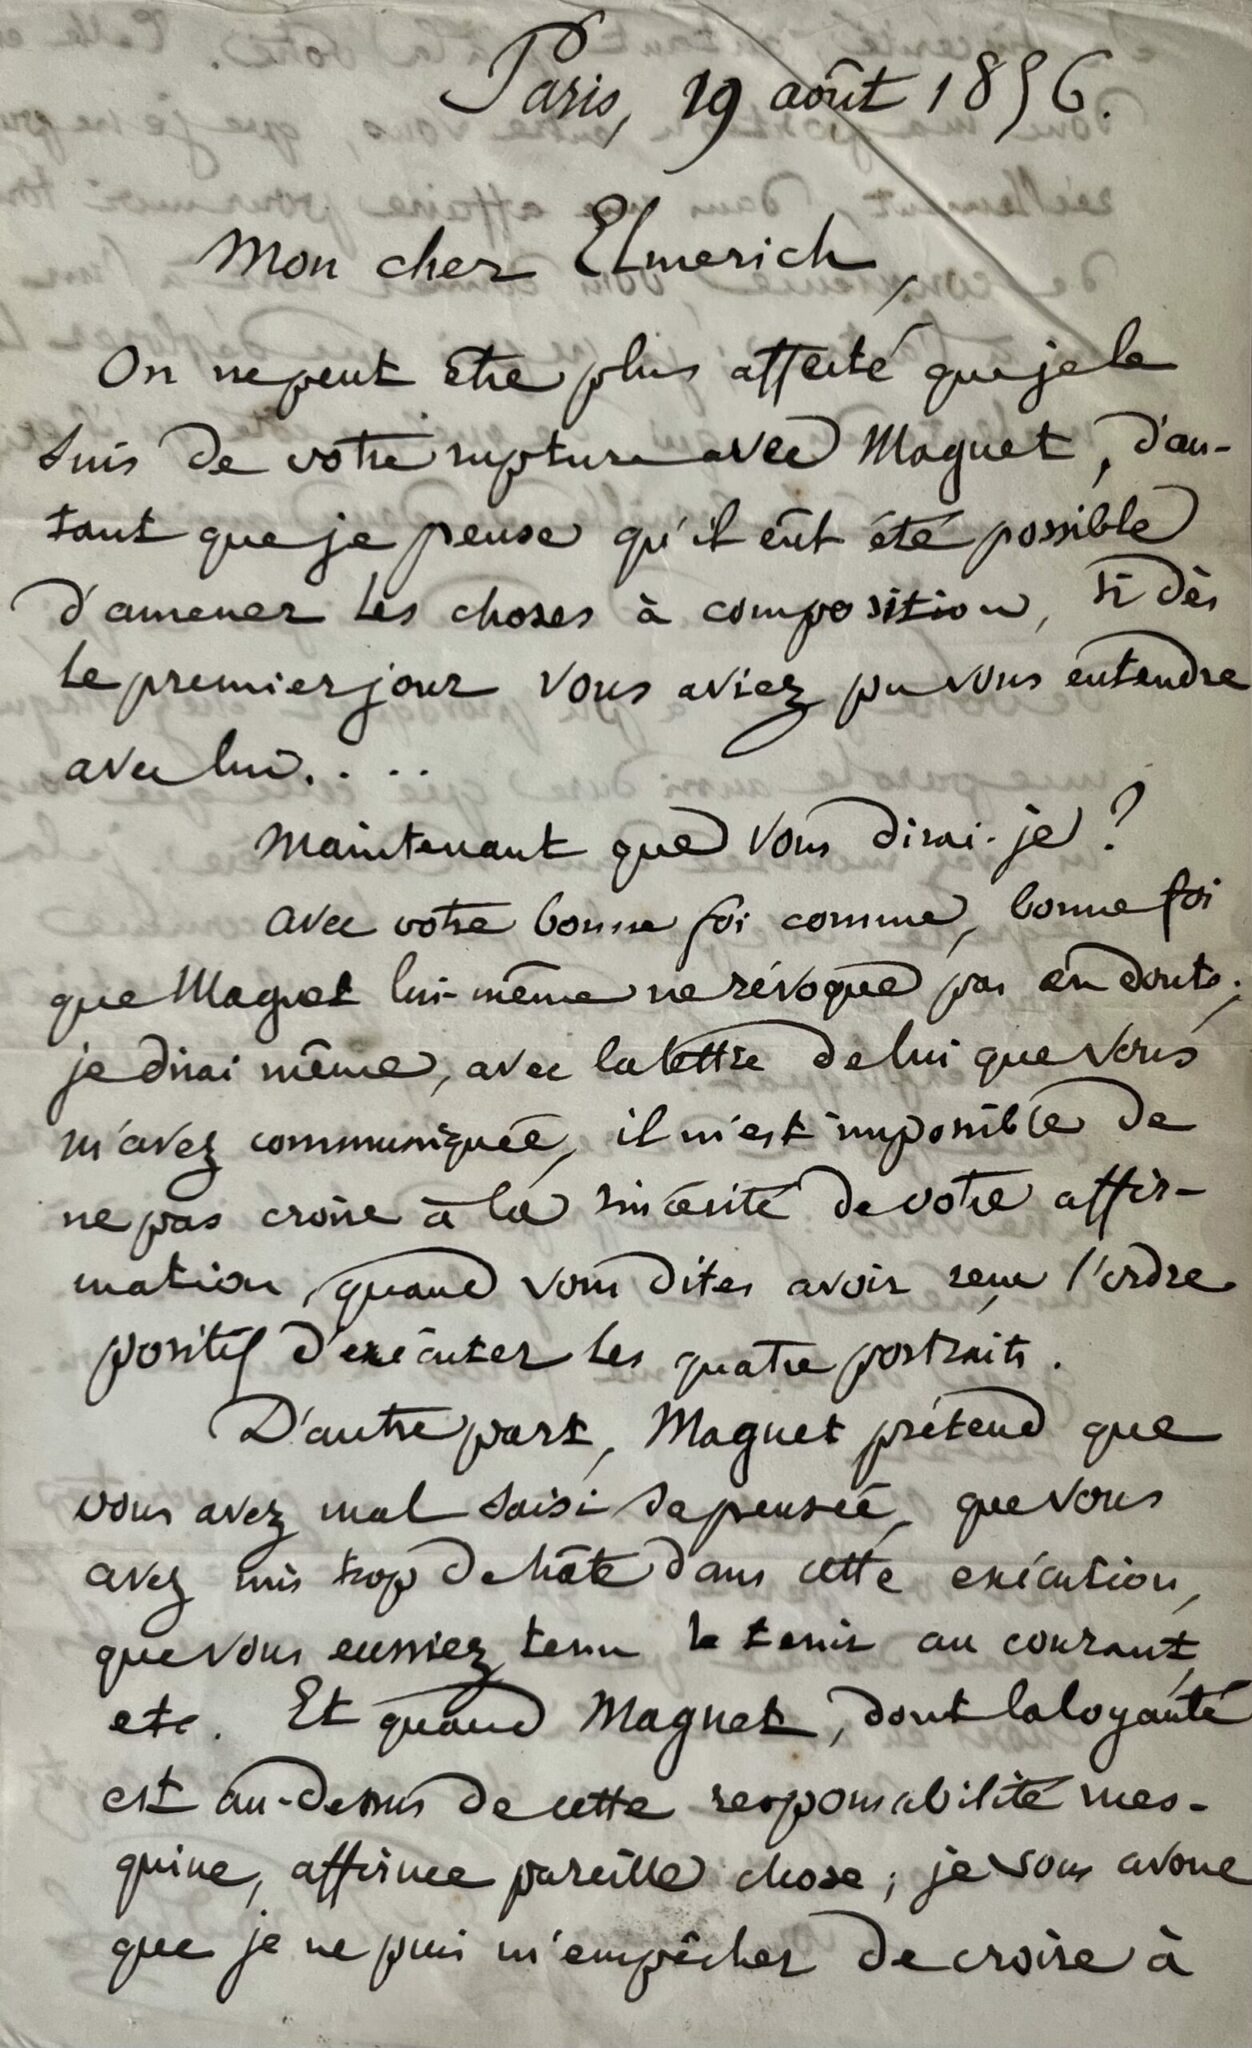 Paris, 19 août 1856.
Mon cher Elmerich,
On ne peut être plus affecté que je le
suis de votre rupture avec Maguet, d'au-
tant que je pense qu'il eût été possible
d'amener les choses à composition, si dès
le premier jour vous aviez pu vous entendre
avec lui. . . .
Maintenant que vous dirai-je ?
avec votre bonne foi comme, bonne foi
que Maguet lui-même ne révoque pas en doute ;
je dirai même, avec la lettre de lui que vous
m'avez communiquée, il m'est impossible de
ne pas croire à la sincérité de votre affir-
mation, quand vous dites avoir reçu l'ordre
positif d'exécuter les quatre portraits.
D'autre part, Maguet prétend que
vous avez mal saisi sa pensée, que vous
avez mis trop de hâte dans cette exécution,
que vous eussiez tenu le tenir au courant,
etc. Et quand Maguet, dont la loyauté
est au-dessus de cette responsabilité mes-
quine, affirme pareille chose ; je vous avoue
que je ne puis m'empêcher de croire à